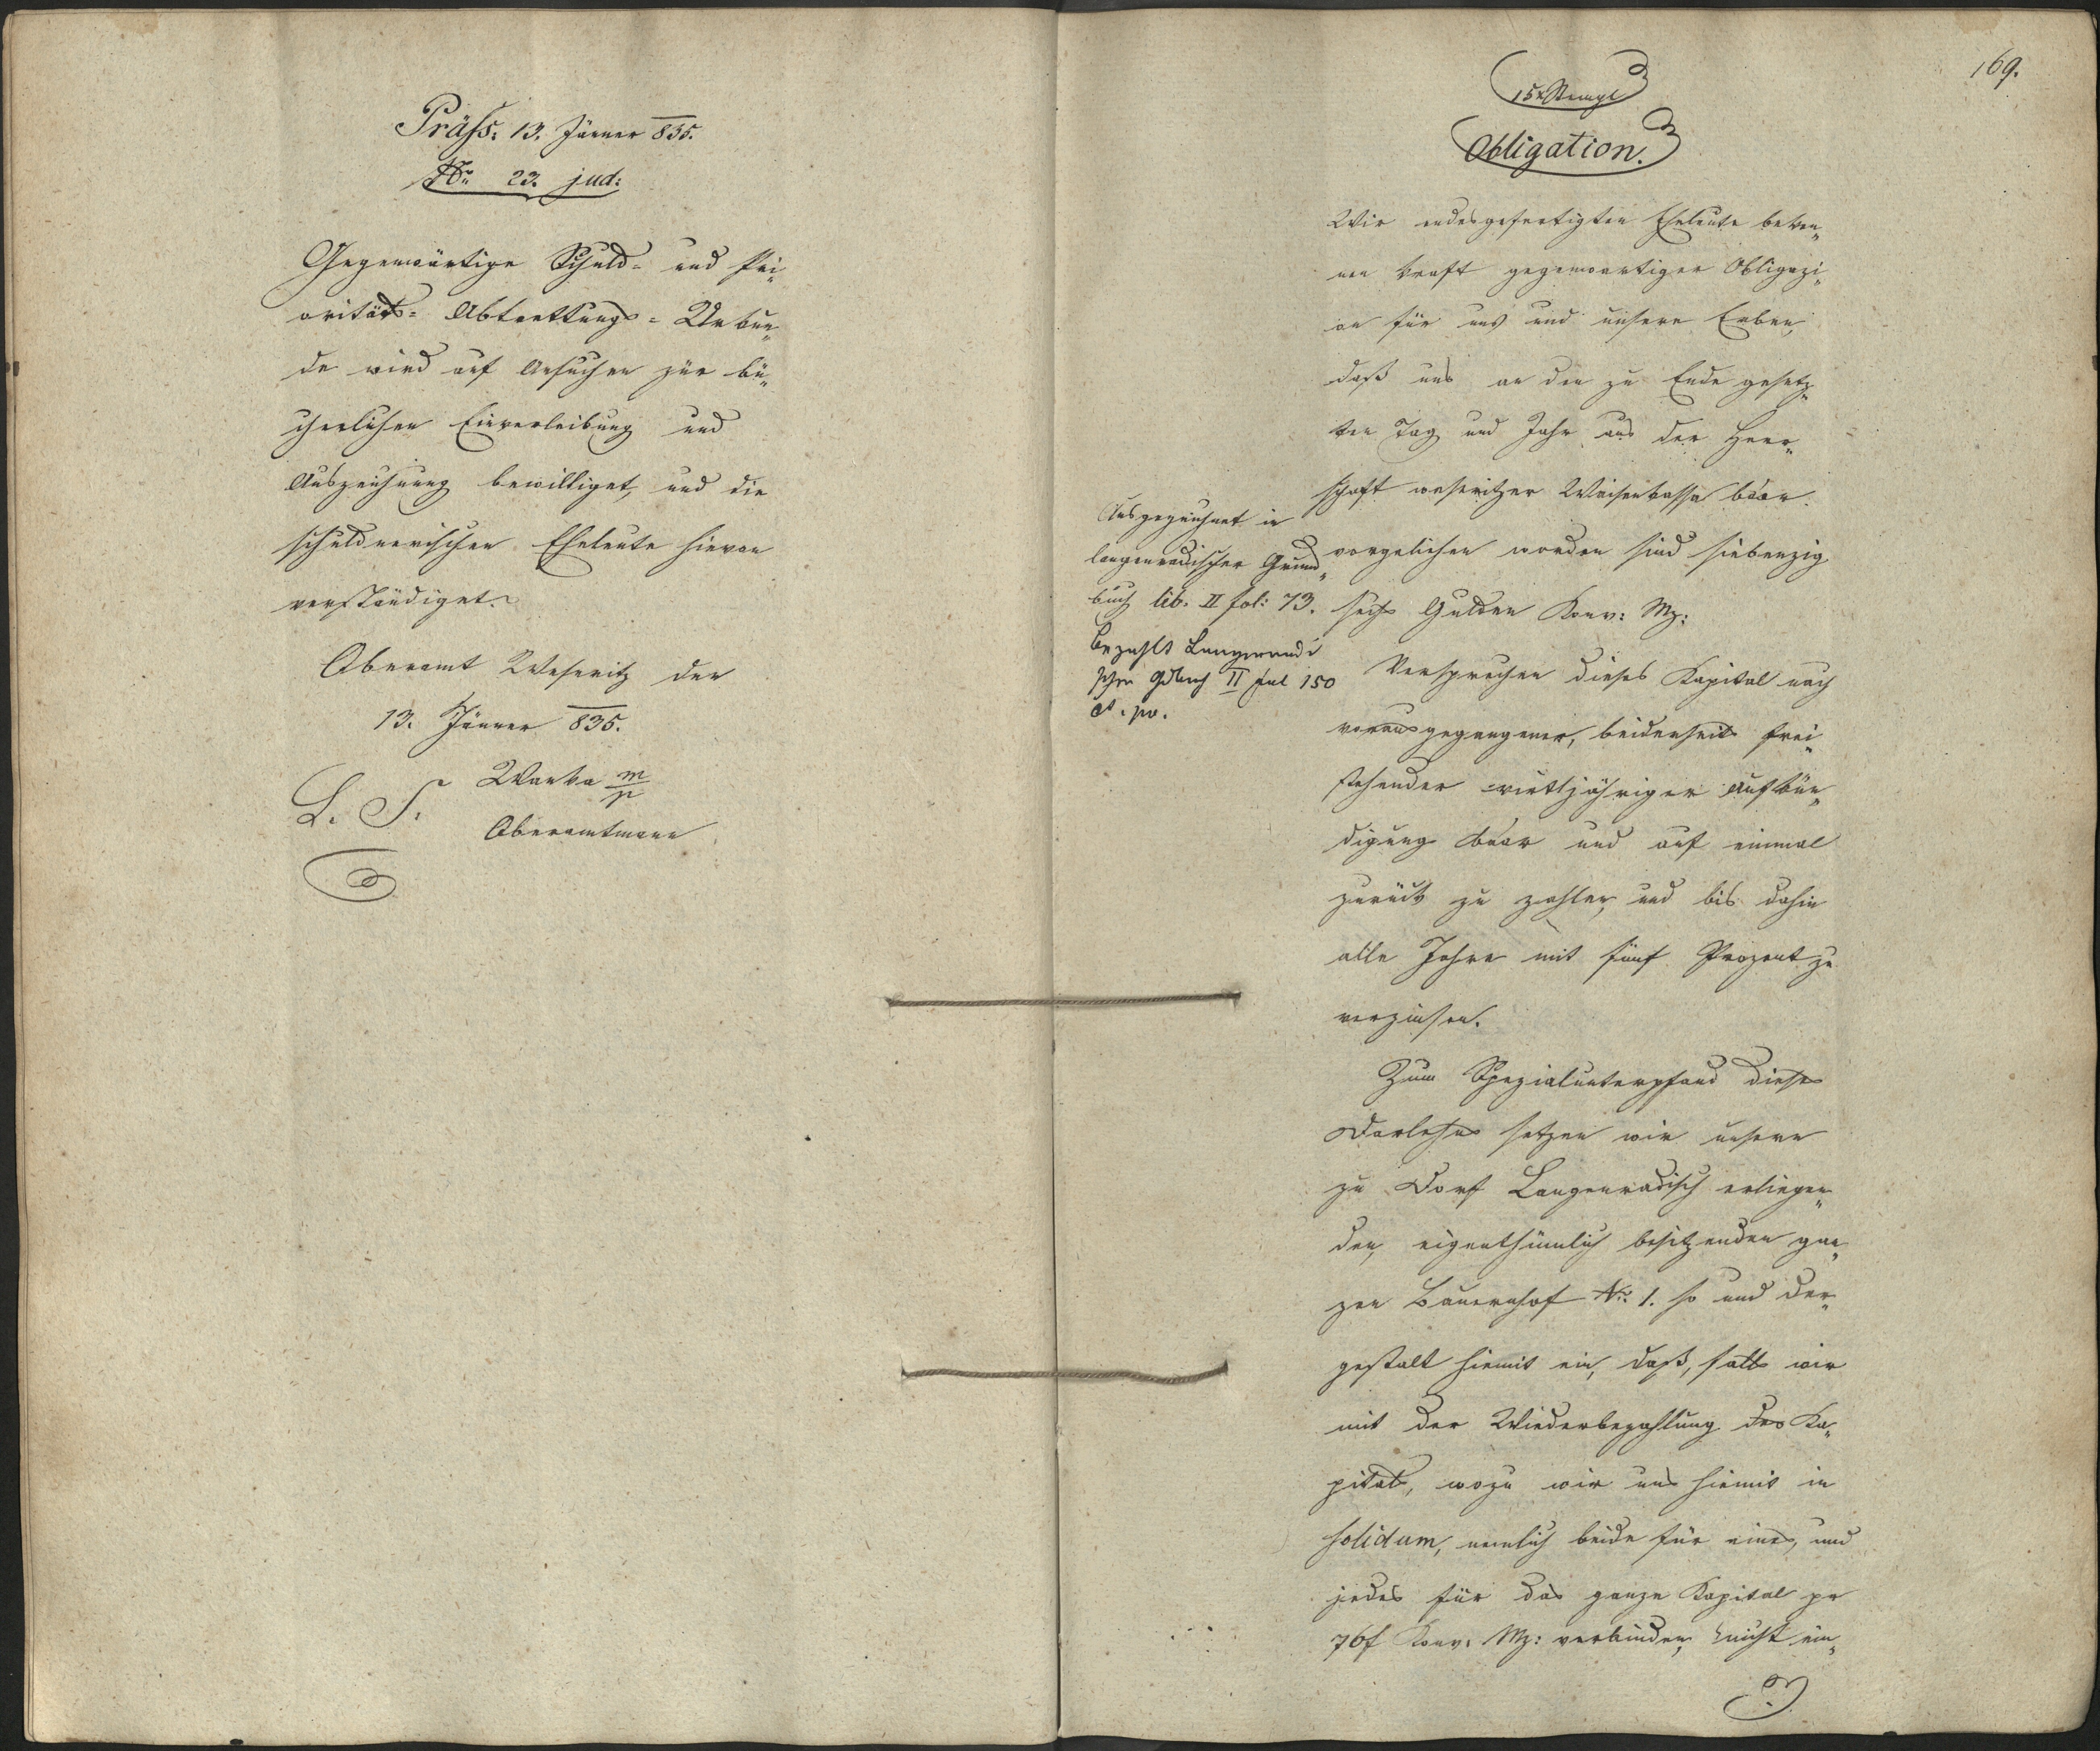 Präss: 13. Jänner 835.
No 23. jud:
Gegenwärtige Schuld- und Pri„
oritäts- Abtrettungs- Urkun„
de wird auf Ansuchen zur bü„
cherlichen Einverleibung und
Auszeichnung bewilliget, und die
schuldnerischen Eheleute hievon
verständiget.
Oberamt Weseritz den
13. Jänner 835.
L. S. Wanka m/p
Oberamtmann
169.
15 x Stempl
Obligation.
Wir endesgefertigten Eheleute beken„
nen kraft gegenwärtiger Obligazi„
on für uns und unsere Erben,
daß uns an den zu Ende gesetz„
ten Tag und Jahr aus der Herr„
schaft weseritzer Waisenkassa baar
vorgeliehen worden sind siebenzig
sechs Gulden Konv: Mz:
Ausgezeichnet in
langenradischer Grund„
buch lib. II fol: 73.
bezahlt Langenradi
scher Gdbuch II fol 150
Versprechen dieses Kapital nach
vorausgegangener, beiderseits frei„
stehender viertljähriger Aufkün„
digung baar und auf einmal
zurück zu zahlen, und bis dahin
alle Jahre mit fünf Prozent zu
verzinsen.
Zum Spezialunterpfand dieses
Darlehns setzen wir unsern
zu Dorf Langenradisch erliegen„
den, eigenthümlich besitzenden gan„
zen Bauernhof No: 1. so und der„
gestalt hiemit ein, daß, falls wir
mit der Wiederbezahlung des Ka„
pitals, wozu wir uns hiemit in
solidum, nemlich beide für eines, und
jedes für das ganze Kapital pr
76f Konv: Mz: verbinden, nicht ein„